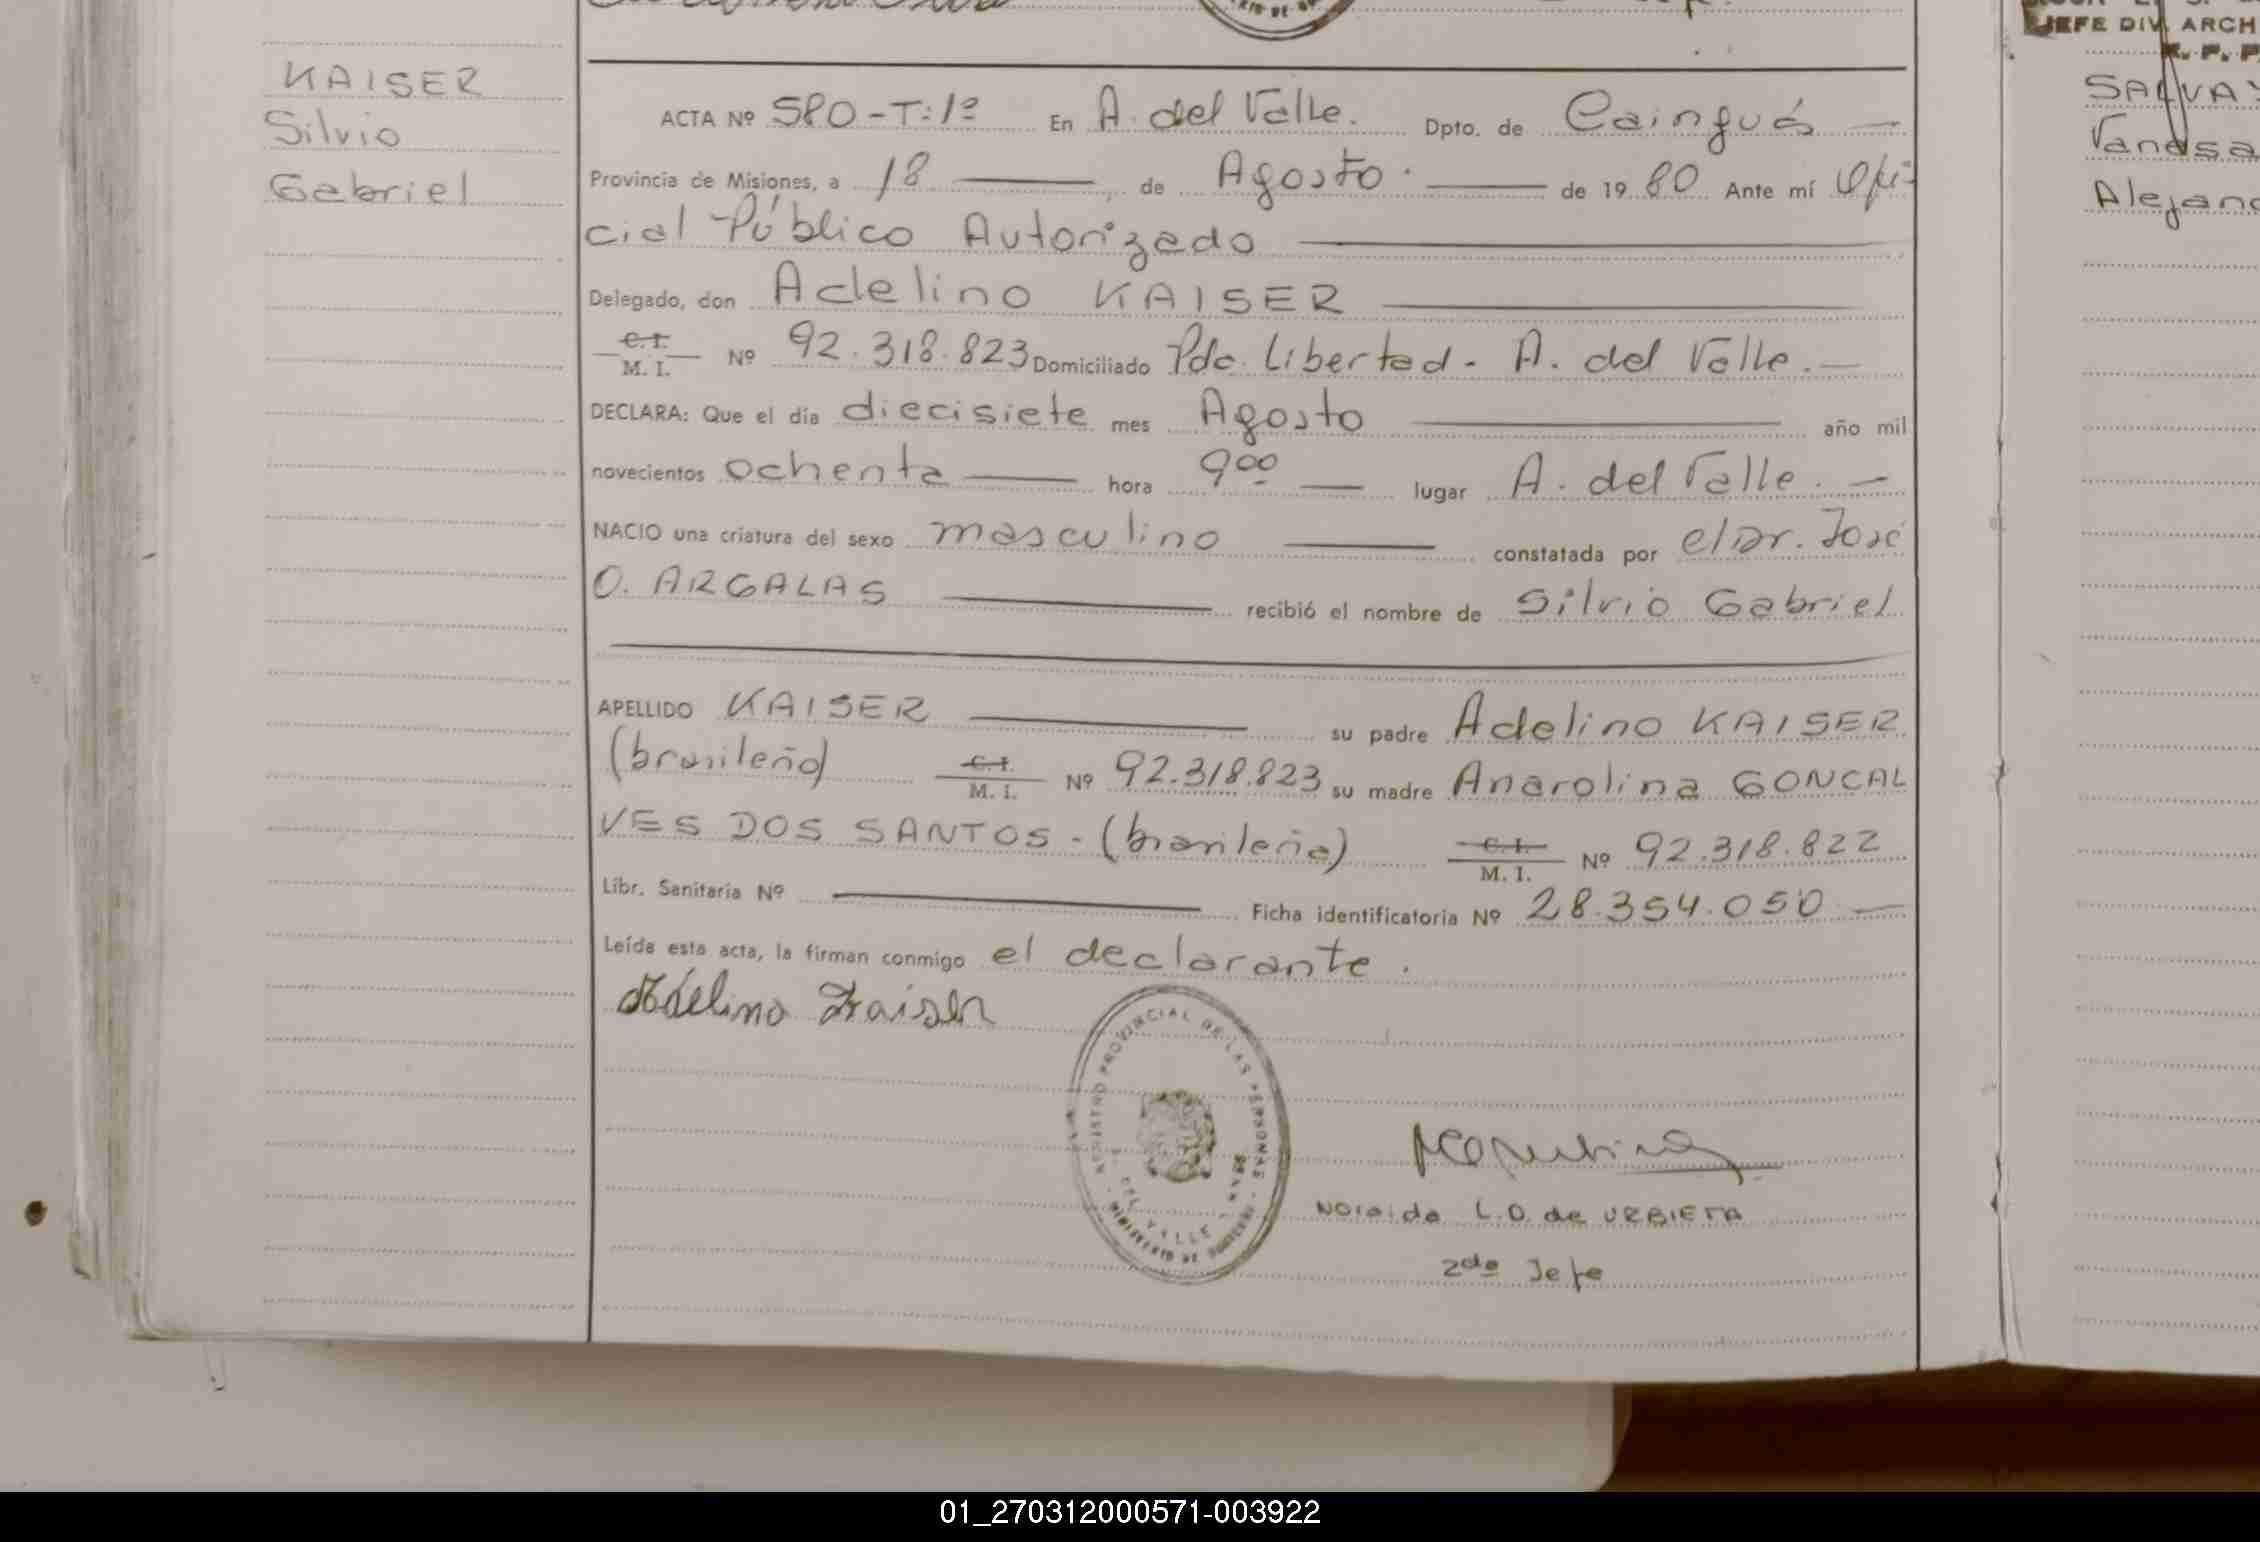 JEFE DIV. ARCH
KAISER
Silvio
Gabriel
ACTA Nº 580-T:1º En A. del Valle. Dpto. de Cainguás
Provincia de Misiones, a 18 de Agosto. de 1980 Ante mí Ofi-
cial Público Autorizado
Delegado, don Adelino KAISER
C.I.
M. I. Nº 92.318.823 Domiciliado Pdo. Libertad - A. del Valle.
DECLARA: Que el día diecisiete mes Agosto año mil
novecientos ochenta hora 9 00 lugar A. del Valle.
NACIO una criatura del sexo masculino constatada por el Dr. José
O. ARGALAS recibió el nombre de Silvio Gabriel
APELLIDO KAISER su padre Adelino KAISER
(brasileño) C.I. M. I. Nº 92.318.823 su madre Anarolina GONCAL
VES DOS SANTOS - (brasileña) C.I. M. I. Nº 92.318.822
Libr. Sanitaria Nº Ficha identificatoria Nº 28.354.050
Leída esta acta, la firman conmigo el declarante.
Adelino Kaiser
REGISTRO PROVINCIAL DE LAS PERSONAS
DEL VALLE
L.O. de URBIETA
2do Jefe
SALVA
Vanesa
Alejan
01_270312000571-003922